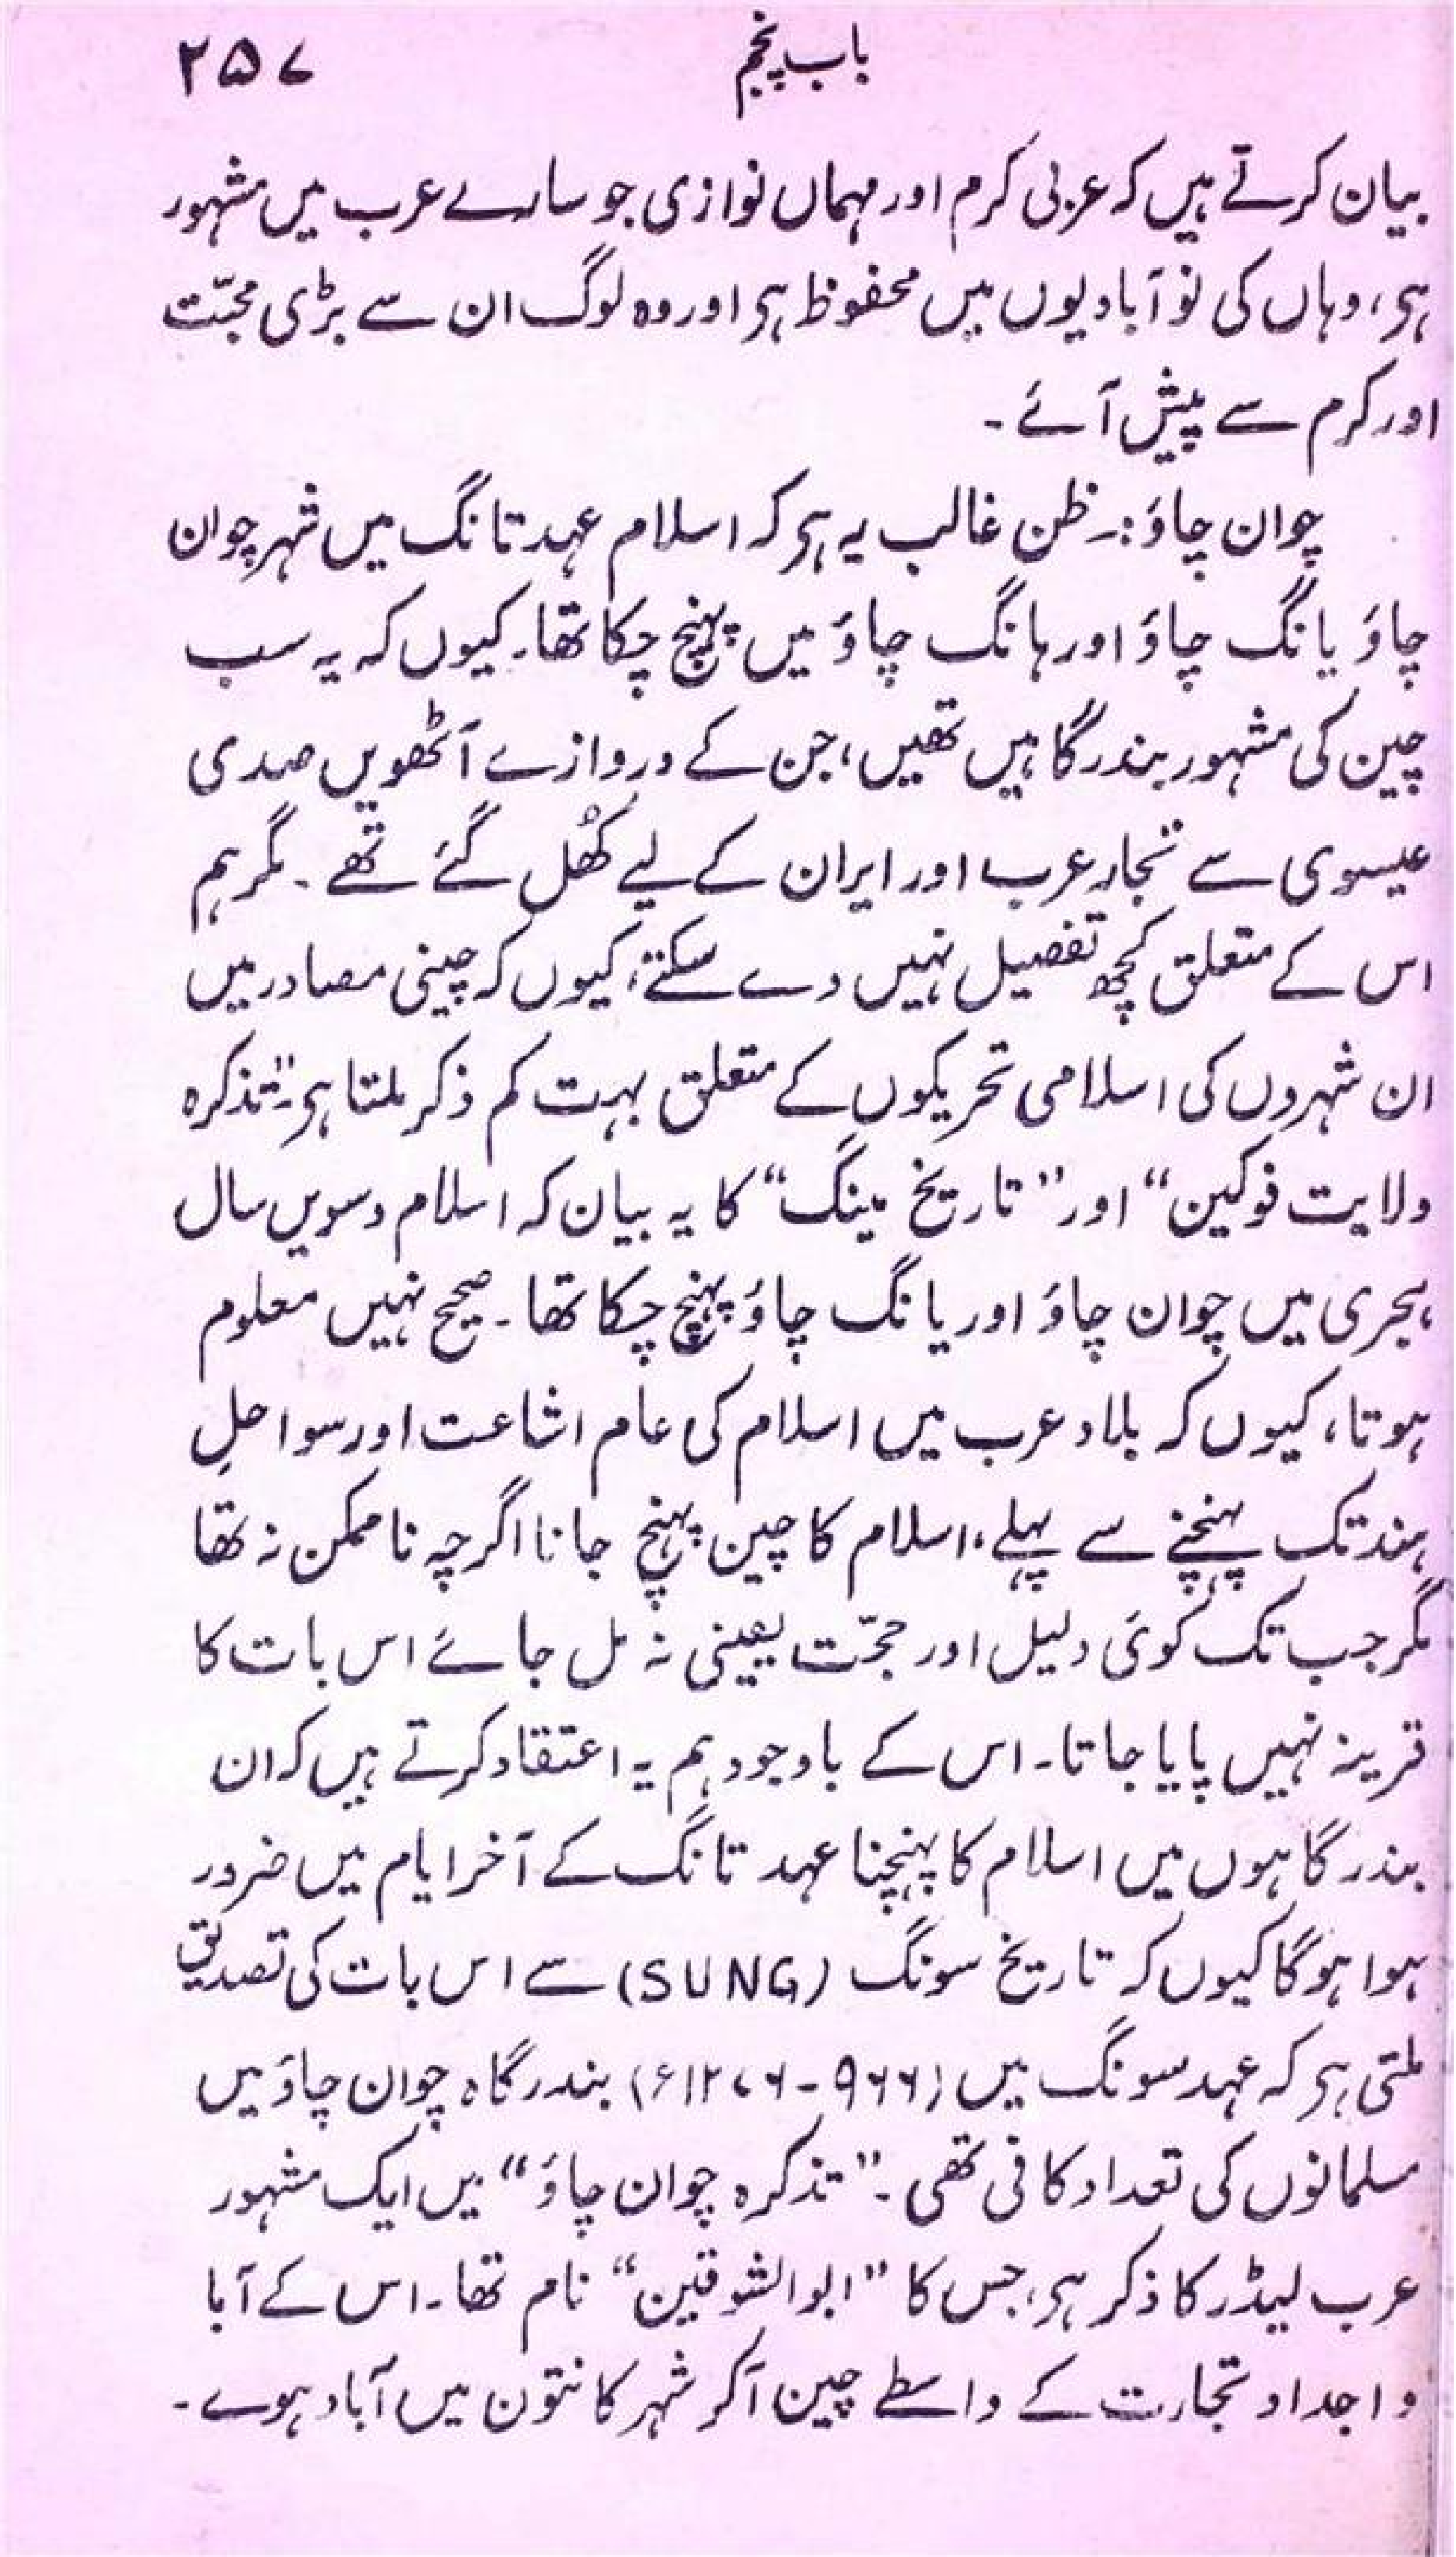 باب پنجم ۲۵۷
بیان کرتے ہیں کہ عربی کرم اور مہماں نوازی جو سارے عرب میں مشہور
ہی، وہاں کی نو آبادیوں میں محفوظ ہی اور وہ لوگ ان سے بڑی محبّت
اور کرم سے پیش آئے ۔
چوان چاؤ:۔ ظن غالب یہ ہی کہ اسلام عہد تانگ میں شہر چوان
چاؤ یانگ چاؤ اور ہانگ چاؤ میں پہنچ چکا تھا۔ کیوں کہ یہ سب
چین کی مشہور بندرگاہیں تھیں، جن کے دروازے آٹھویں صدی
عیسوی سے تجار عرب اور ایران کے لیے کُھل گئے تھے ۔ مگر ہم
اس کے متعلق کچھ تفصیل نہیں دے سکتے، کیوں کہ چینی مصادر میں
ان شہروں کی اسلامی تحریکوں کے متعلق بہت کم ذکر ملتا ہی۔ ”تذکرہ
ولایت فوکین“ اور ”تاریخ مینگ“ کا یہ بیان کہ اسلام دسویں سال
ہجری میں چوان چاؤ اور یانگ چاؤ پہنچ چکا تھا۔ صحیح نہیں معلوم
ہوتا، کیوں کہ بلاد عرب میں اسلام کی عام اشاعت اور سواحلِ
ہند تک پہنچنے سے پہلے، اسلام کا چین پہنچ جانا اگرچہ ناممکن نہ تھا
مگر جب تک کوئی دلیل اور حجّت یقینی نہ مل جائے اس بات کا
قرینہ نہیں پایا جاتا۔ اس کے باوجود ہم یہ اعتقاد کرتے ہیں کہ ان
بندرگاہوں میں اسلام کا پہنچنا عہد تانگ کے آخر ایام میں ضرور
ہوا ہوگا کیوں کہ تاریخ سونگ (SUNG) سے اس بات کی تصدیق
ملتی ہی کہ عہد سونگ میں (۹۶۶-۱۲۷۶ء) بندرگاہ چوان چاؤ میں
مسلمانوں کی تعداد کافی تھی ۔ ”تذکرہ چوان چاؤ“ میں ایک مشہور
عرب لیڈر کا ذکر ہی، جس کا ”ابوالشوقین“ نام تھا۔ اس کے آبا
و اجداد تجارت کے واسطے چین آکر شہر کانتون میں آباد ہوے ۔